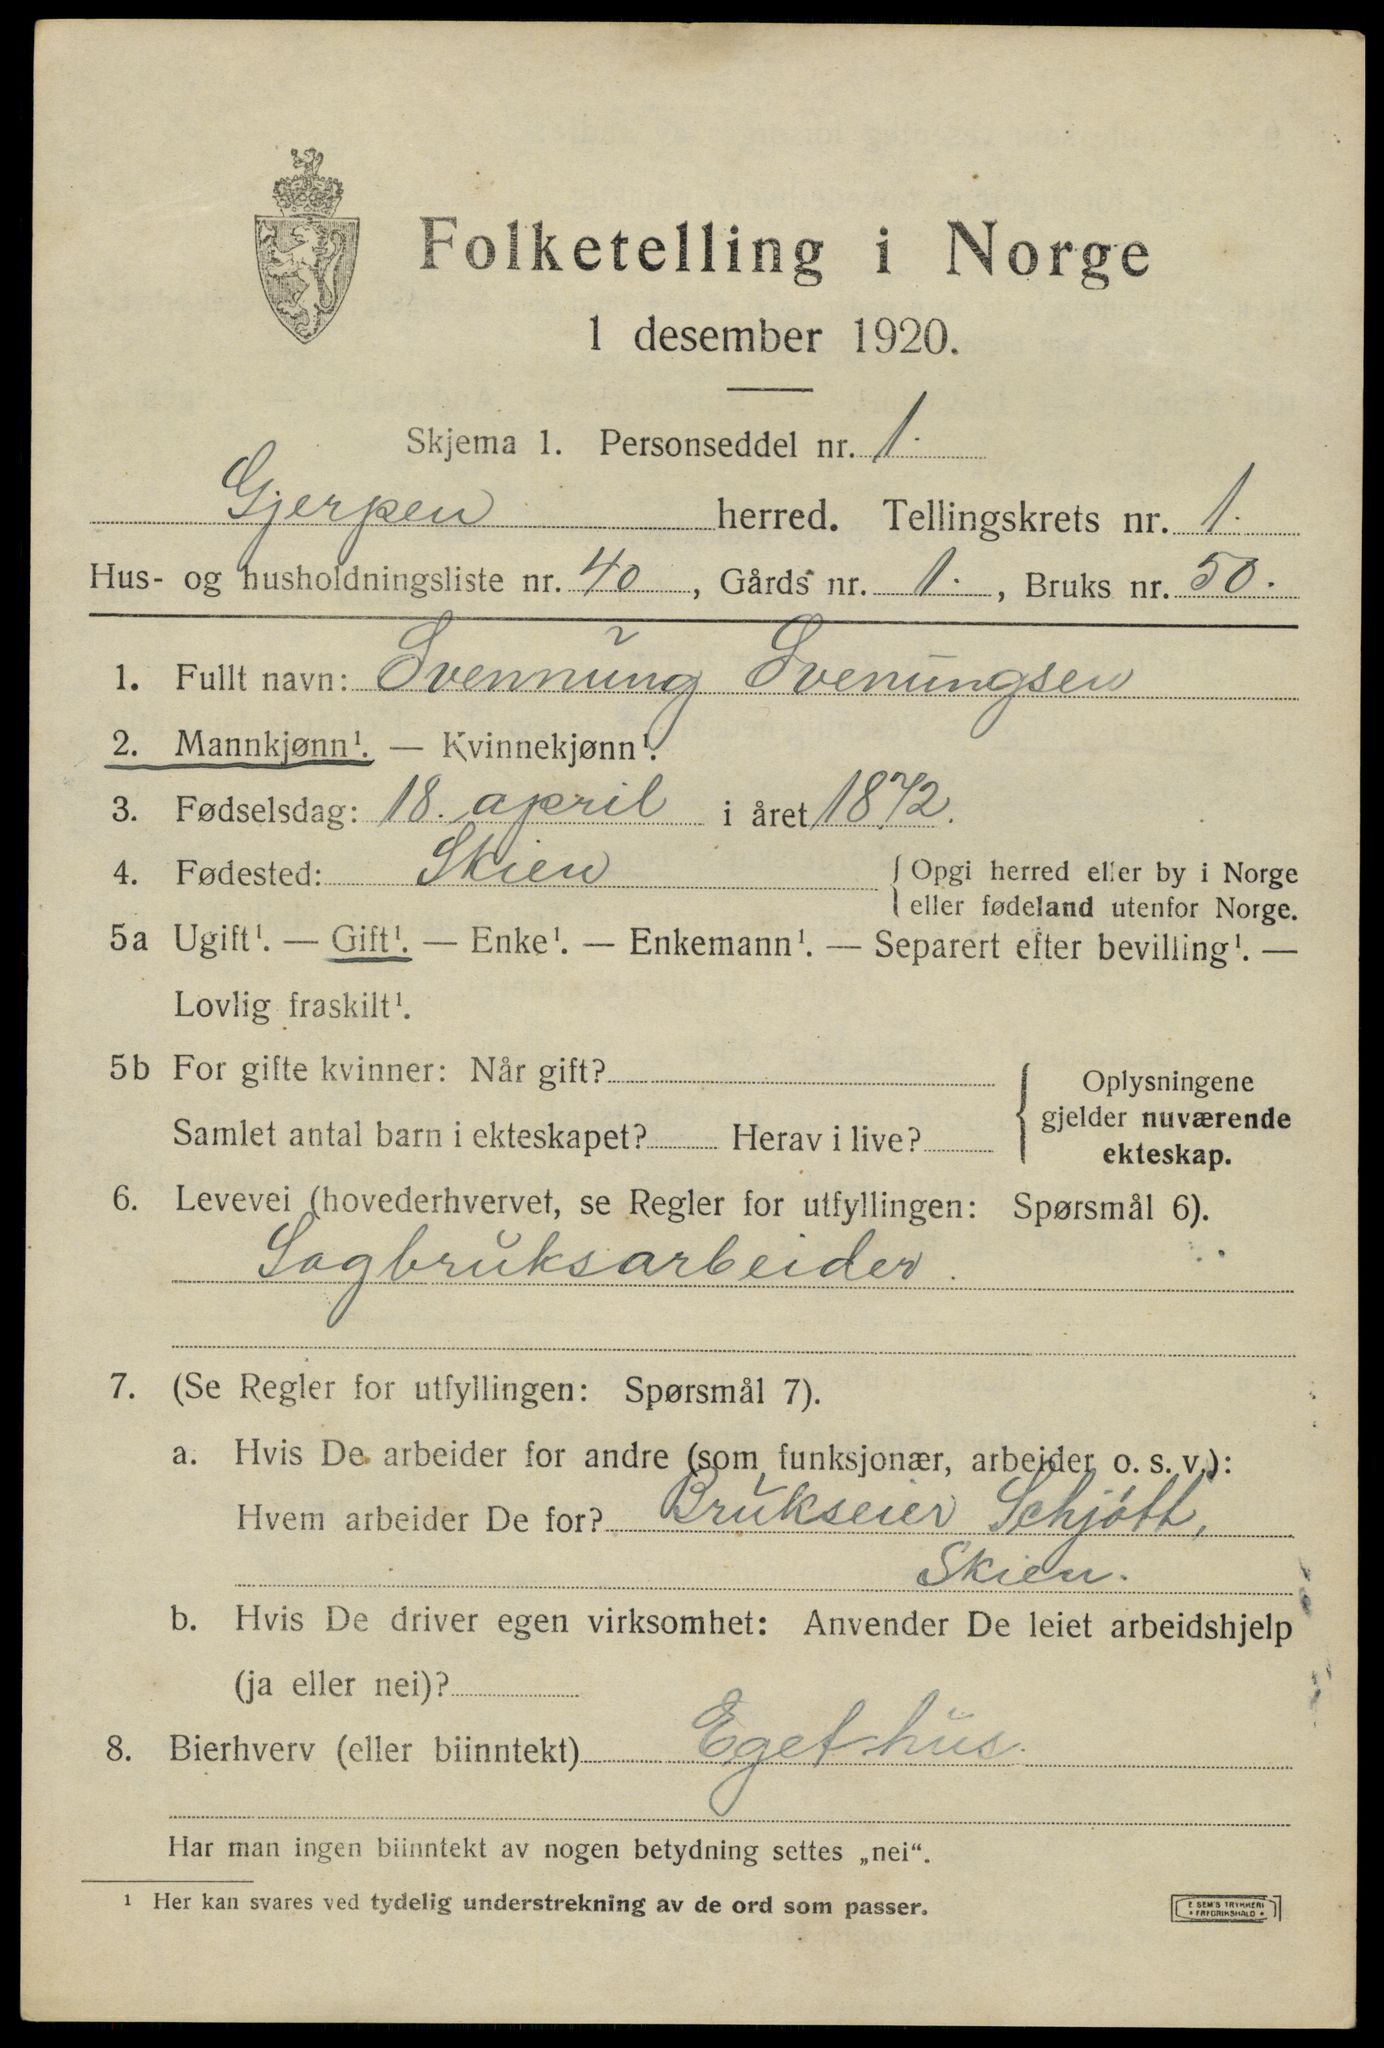 Folketelling i Norge
1 desember 1920.
Skjema 1. Personseddel nr. 1.
Gjerpen herred. Tellingskrets nr. 1.
Hus- og husholdningsliste nr. 40, Gårds nr. 1., Bruks nr. 50.
1. Fullt navn: Svennung Svenungsen
2. Mannkjønn¹. — Kvinnekjønn¹.
3. Fødselsdag: 18. april i året 1872.
4. Fødested: Skien {Opgi herred eller by i Norge
eller fødeland utenfor Norge.
5a Ugift¹. — Gift¹. — Enke¹. — Enkemann¹. — Separert efter bevilling¹. —
Lovlig fraskilt¹.
5b For gifte kvinner: Når gift?
Samlet antal barn i ekteskapet? Herav i live?
{Oplysningene
gjelder nuværende
ekteskap.
6. Levevei (hovederhvervet, se Regler for utfyllingen: Spørsmål 6).
Sagbruksarbeider.
7. (Se Regler for utfyllingen: Spørsmål 7).
a. Hvis De arbeider for andre (som funksjonær, arbeider o. s. v.):
Hvem arbeider De for? Brukseier Schjött,
Skien.
b. Hvis De driver egen virksomhet: Anvender De leiet arbeidshjelp
(ja eller nei)?
8. Bierhverv (eller biinntekt) Eget hus.
Har man ingen biinntekt av nogen betydning settes „nei“.
¹ Her kan svares ved tydelig understrekning av de ord som passer.
E SEM'S TRYKKERI
* FREDRIKSHALD *